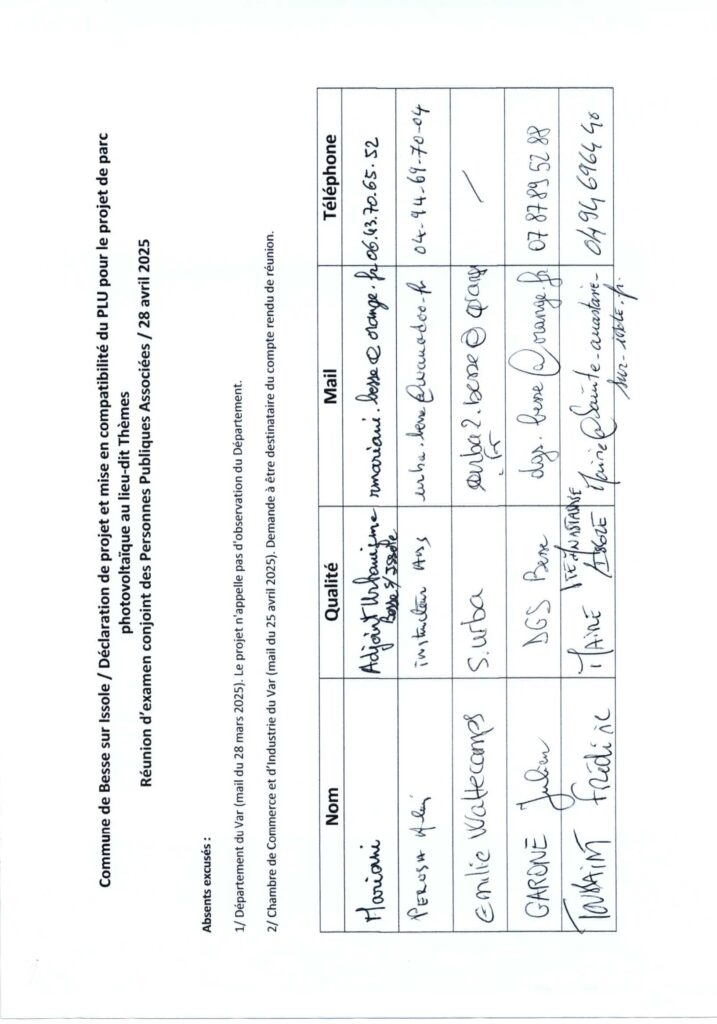 Commune de Besse sur Issole / Déclaration de projet et mise en compatibilité du PLU pour le projet de parc
photovoltaïque au lieu-dit Thèmes
Réunion d'examen conjoint des Personnes Publiques Associées / 28 avril 2025
Absents excusés :
1/ Département du Var (mail du 28 mars 2025). Le projet n'appelle pas d'observation du Département.
2/ Chambre de Commerce et d'Industrie du Var (mail du 25 avril 2025). Demande à être destinataire du compte rendu de réunion.
Nom Qualité Mail Téléphone
Mariani Adjoint Urbanisme rmariani.besse@orange.fr 06.43.70.65.52
Besse s/Issole
PEROSA instructeur urba.besse@wanadoo.fr 04-94-69-70-04
Emilie Wattecamps S.urba urba2.besse@orange /
fr
GARONE Julien DGS Besse dgs.besse@orange.fr 07 87 89 52 88
TOUSSAINT Frédéric MAIRE STE ANASTASIE mairie@sainte-anastasie- 04 94 69 64 40
/ISSOLE sur-issole.fr.